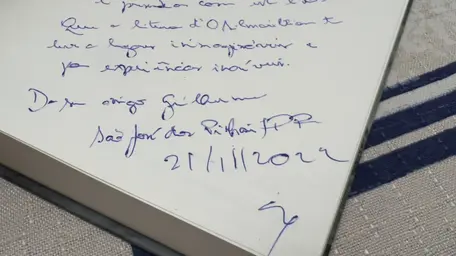 Que a leitura d'O Almadilhan te
leve a lugares inimagináveis e
por experiências incríveis.
Do seu amigo Guilherme
São José dos Pinhais/PR
21/11/2022